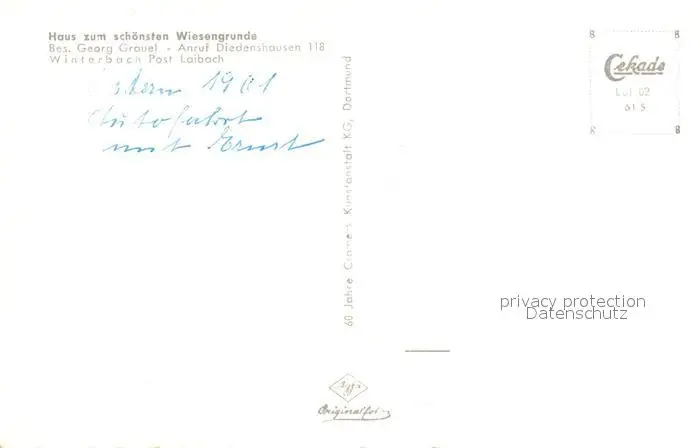 Haus zum schönsten Wiesengrunde
Bes. Georg Grauel - Anruf Diedenshausen 118
Winterbach Post Laibach
Ostern 1961
Autofahrt
mit Ernst
60 Jahre Cramers Kunstanstalt KG, Dortmund
8 8
Cekade
61 S
8 8
privacy protection
Datenschutz
Agfa
Originalfoto